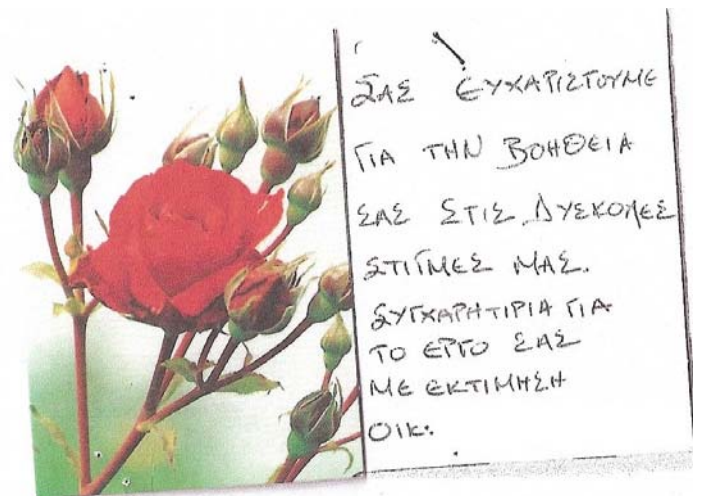 ΣΑΣ ΕΥΧΑΡΙΣΤΟΥΜΕ
ΓΙΑ ΤΗΝ ΒΟΗΘΕΙΑ
ΣΑΣ ΣΤΙΣ ΔΥΣΚΟΛΕΣ
ΣΤΙΓΜΕΣ ΜΑΣ.
ΣΥΓΧΑΡΗΤΙΡΙΑ ΓΙΑ
ΤΟ ΕΡΓΟ ΣΑΣ
ΜΕ ΕΚΤΙΜΗΣΗ
ΟΙΚ.